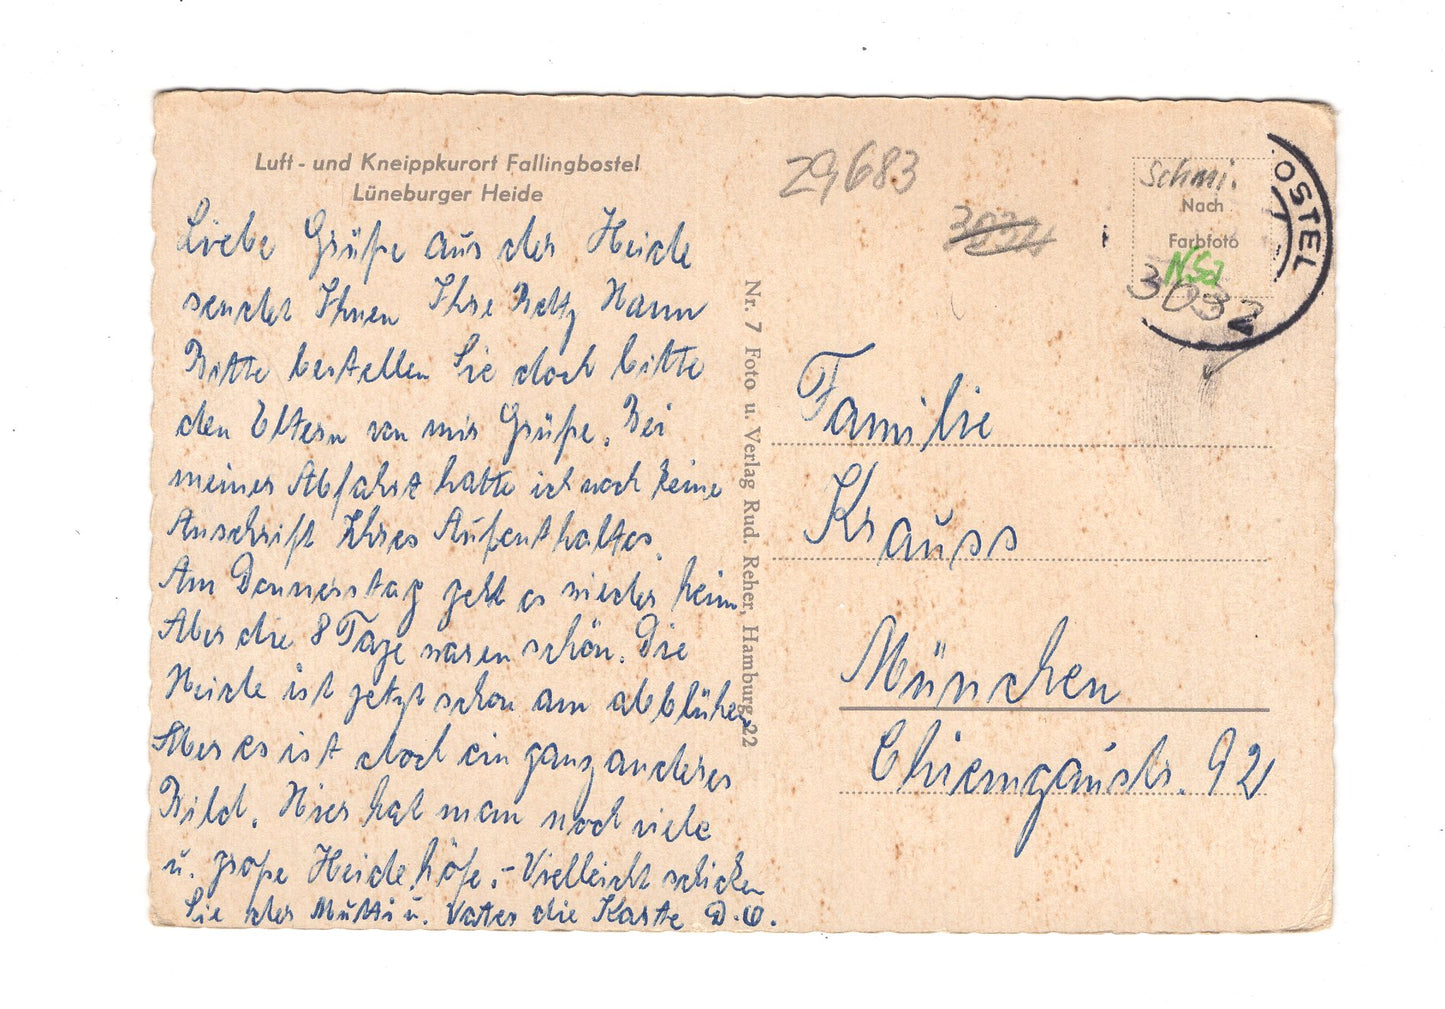 Luft- und Kneippkurort Fallingbostel
Lüneburger Heide
Liebe Grüße aus der Heide
sendet Ihnen Ihre Hann
Bitte bestellen Sie doch bitte
den Eltern von mir Grüße. Bei
meiner Abfahrt hatte ich noch keine
Anschrift Ihres Aufenthaltes.
Am Donnerstag geht es wieder heim
Aber die 8 Tage waren schön. Die
Heide ist jetzt schon am abblühen
Aber es ist doch ein ganz anderes
Bild. Hier hat man noch viele
u. große Heidehöfe.- Vielleicht schicken
Sie der Mutti u. Vater die Karte D.O.
Nr. 7 Foto u. Verlag Rud. Reher, Hamburg 22
29683
3034
Schmi.
Nach
Farbfoto
3032
OSTEL
Familie
Krauss
München
Chiemgaustr. 92